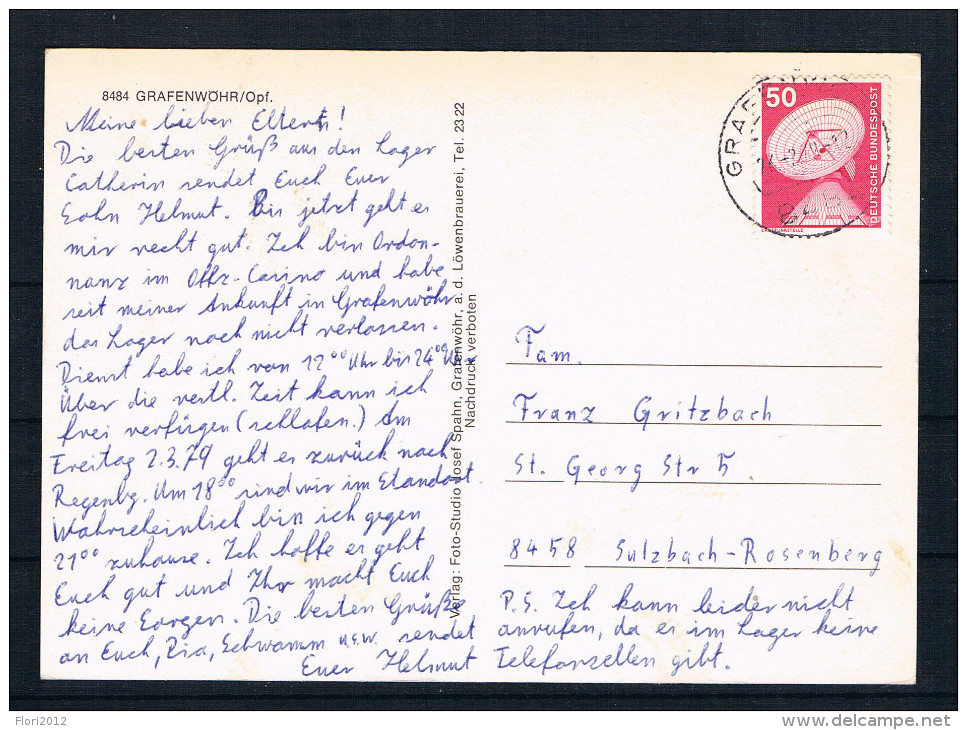 8484 GRAFENWÖHR/Opf.
Meine lieben Eltern!
Die besten Grüß aus den Lager
Catherin sendet Euch Euer
Sohn Helmut. Bis jetzt geht es
mir recht gut. Ich bin Ordon-
nanz im Offz-Casino und habe
seit meiner Ankunft in Grafenwöhr
das Lager noch nicht verlassen.
Dienst habe ich von 12°° Uhr bis 24°° Uhr
Über die restl. Zeit kann ich
frei verfügen (schlafen.) Am
Freitag 2.3.79 geht es zurück nach
Regenbg. Um 18°° sind wir im Standort.
Wahrscheinlich bin ich gegen
21°° zuhause. Ich hoffe es geht
Euch gut und Ihr macht Euch
keine Sorgen. Die besten Grüße
an Euch, Pia, Schwamm u.s.w. sendet
Euer Helmut
Verlag: Foto-Studio Josef Spahn, Grafenwöhr, a. d. Löwenbrauerei, Tel. 23 22
Nachdruck verboten
50
DEUTSCHE BUNDESPOST
Fam.
Franz Gritzbach
St. Georg Str 5.
8458 Sulzbach-Rosenberg
P.S. Ich kann leider nicht
anrufen, da es im Lager keine
Telefonzellen gibt.
Flori2012
delcampe.net